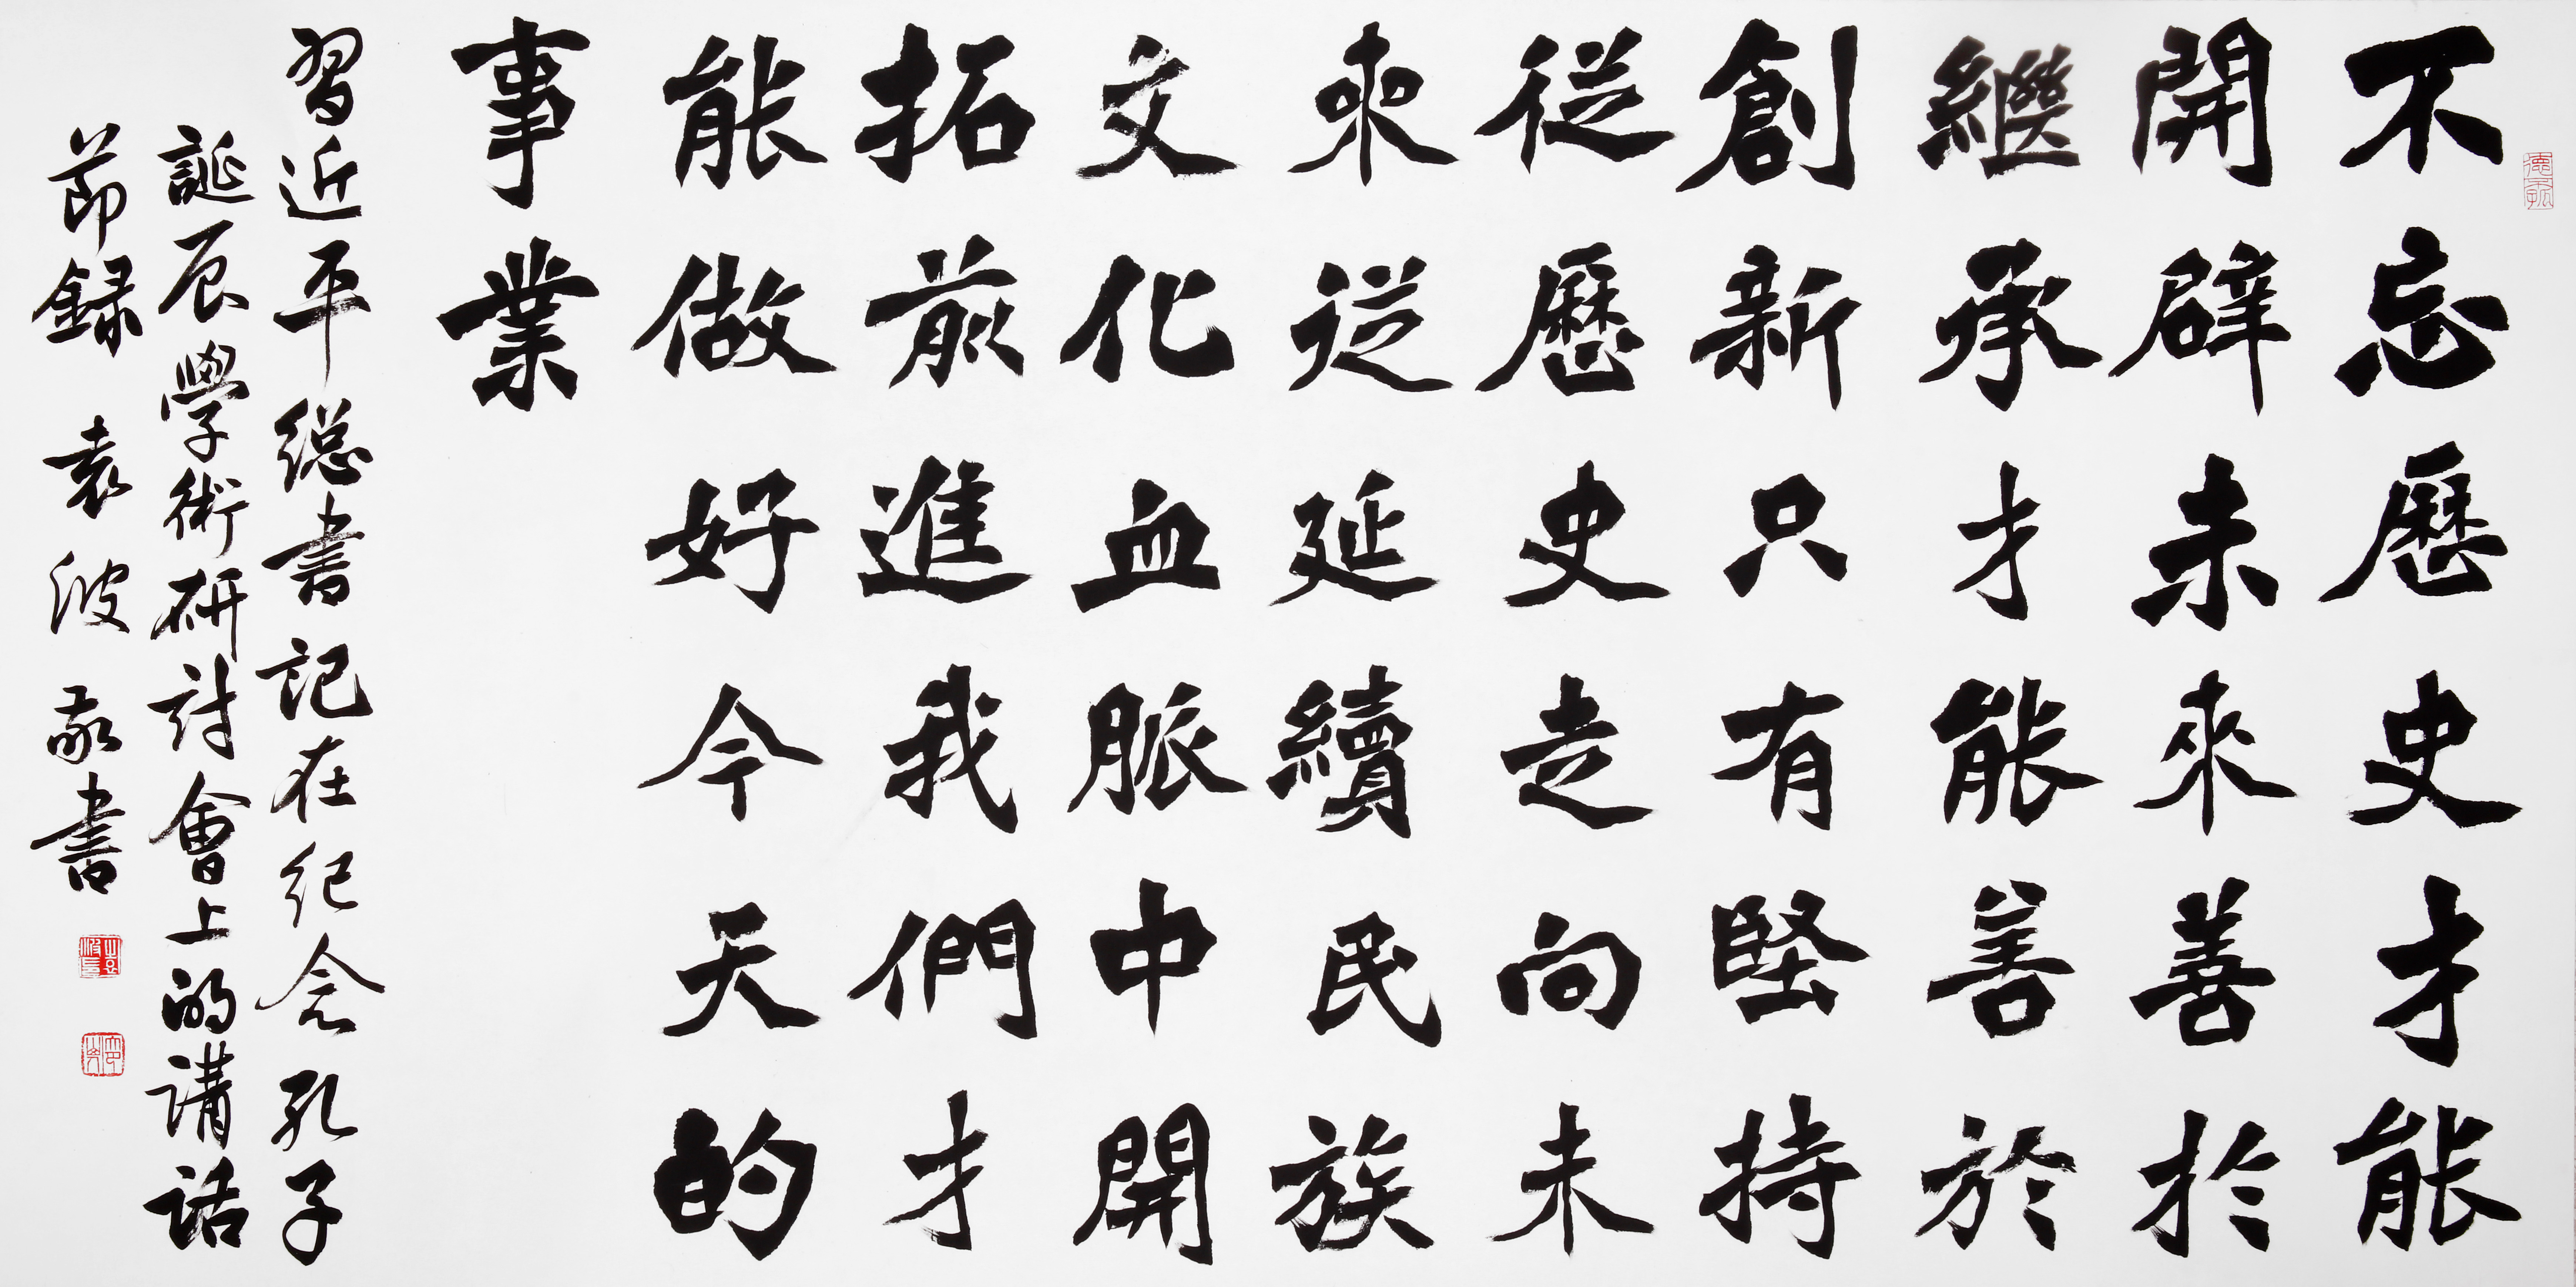 不忘歷史才能
開辟未來善於
繼承才能善於
創新只有堅持
從歷史走向未
來從延續民族
文化血脈中開
拓前進我們才
能做好今天的
事業
習近平總書記在纪念孔子
誕辰學術研討會上的講話
節録 袁波敬書